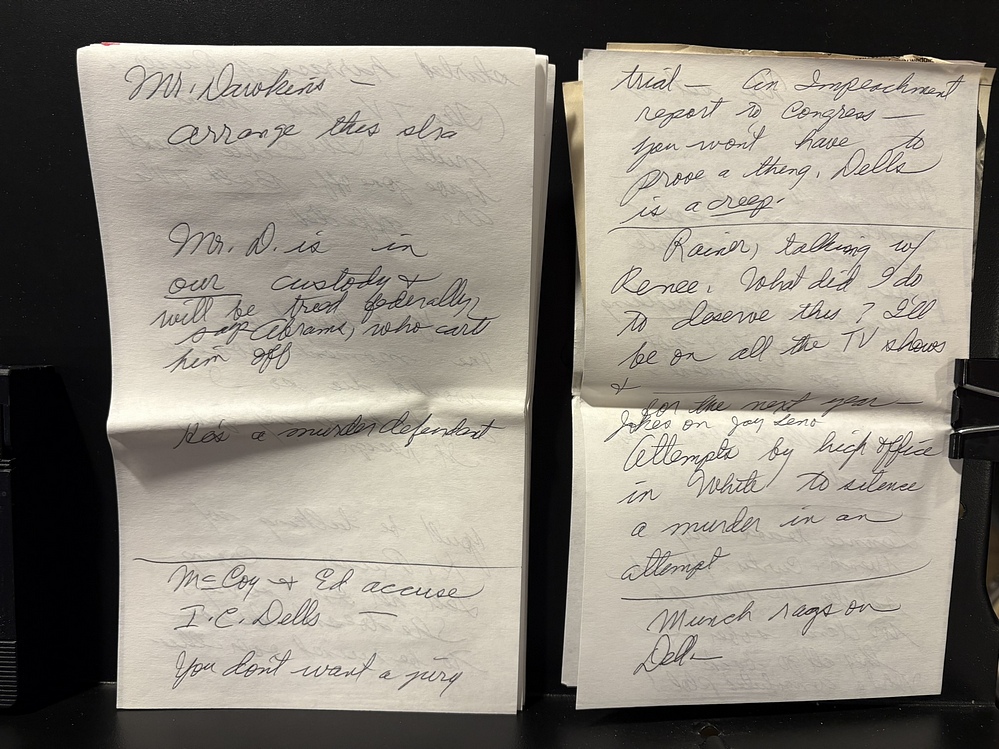 Mr. Dawkins —
arrange this
Mr. D. is in
our custody &
will be tried federally,
say Abrams, who cart
him off
He's a murder defendant
McCoy & Ed accuse
I.C. Dells —
You don't want a jury
trial — An Impeachment
report to Congress —
you won't have to
prove a thing. Dells
is a creep.
Rainer, talking w/
Renee. What did I do
to deserve this? I'll
be on all the TV shows
&
for the next year —
Jokes on Jay Leno
Attempts by high office
in White to silence
a murder in an
attempt
Munch rags on
Dell